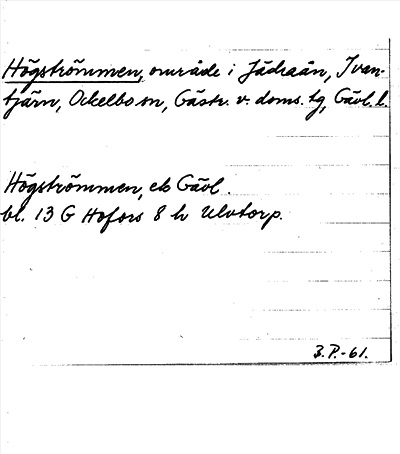 Högströmmen, område i Jädraån, Ivan-
tjärn, Ockelbo sn, Gästr. v. doms. tg, Gävl. l.
Högströmmen, ek Gävl.
bl. 13 G Hofors 8 h Ulvtorp.
B.P.-61.